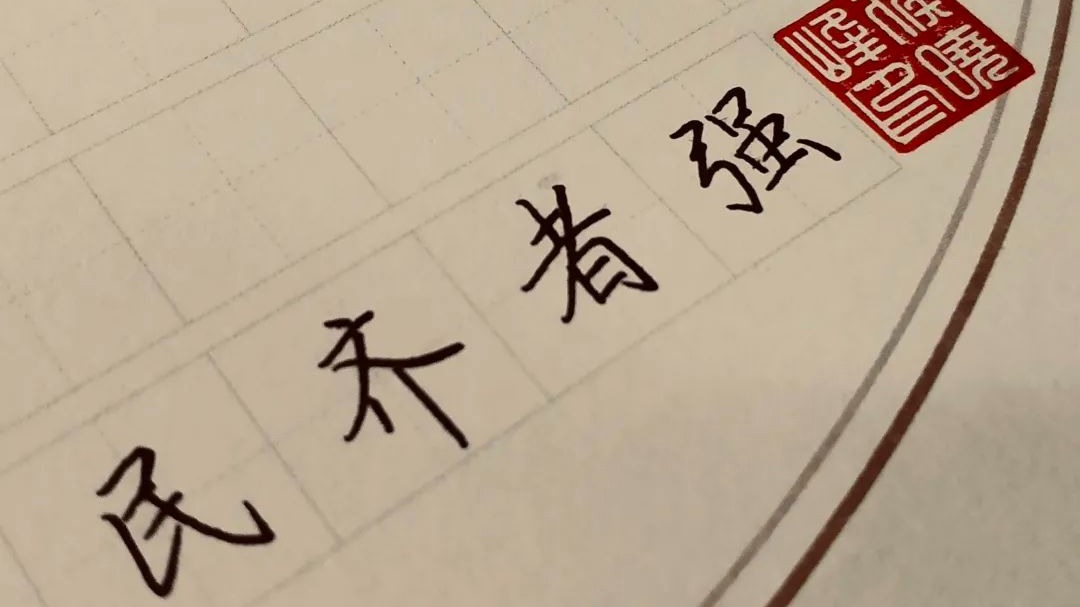 民齐者强